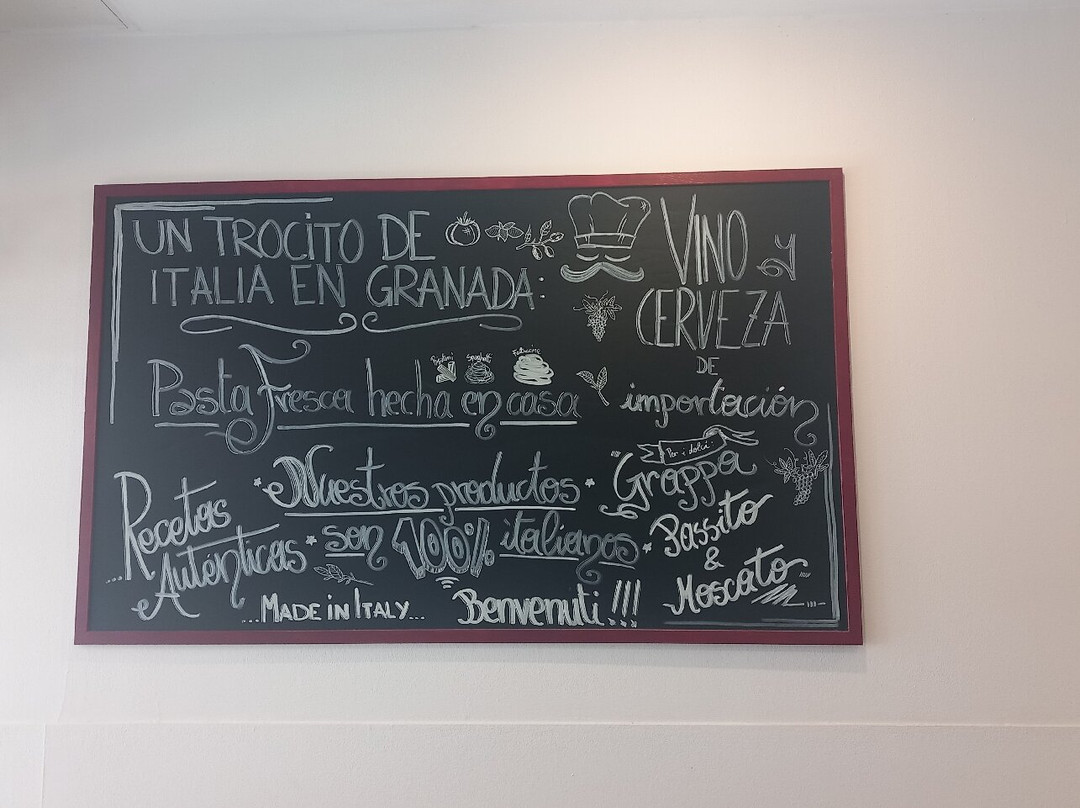 UN TROCITO DE
ITALIA EN GRANADA:
VINO y
CERVEZA
DE
importación
Spaghetti
Fettuccine
Pasta Fresca hecha en casa
...Recetas
Auténticas
* Nuestros productos *
* son 100% italianos *
Per i dolci:
"Grappa
Passito
&
Moscato"
...MADE IN ITALY...
Benvenuti!!!